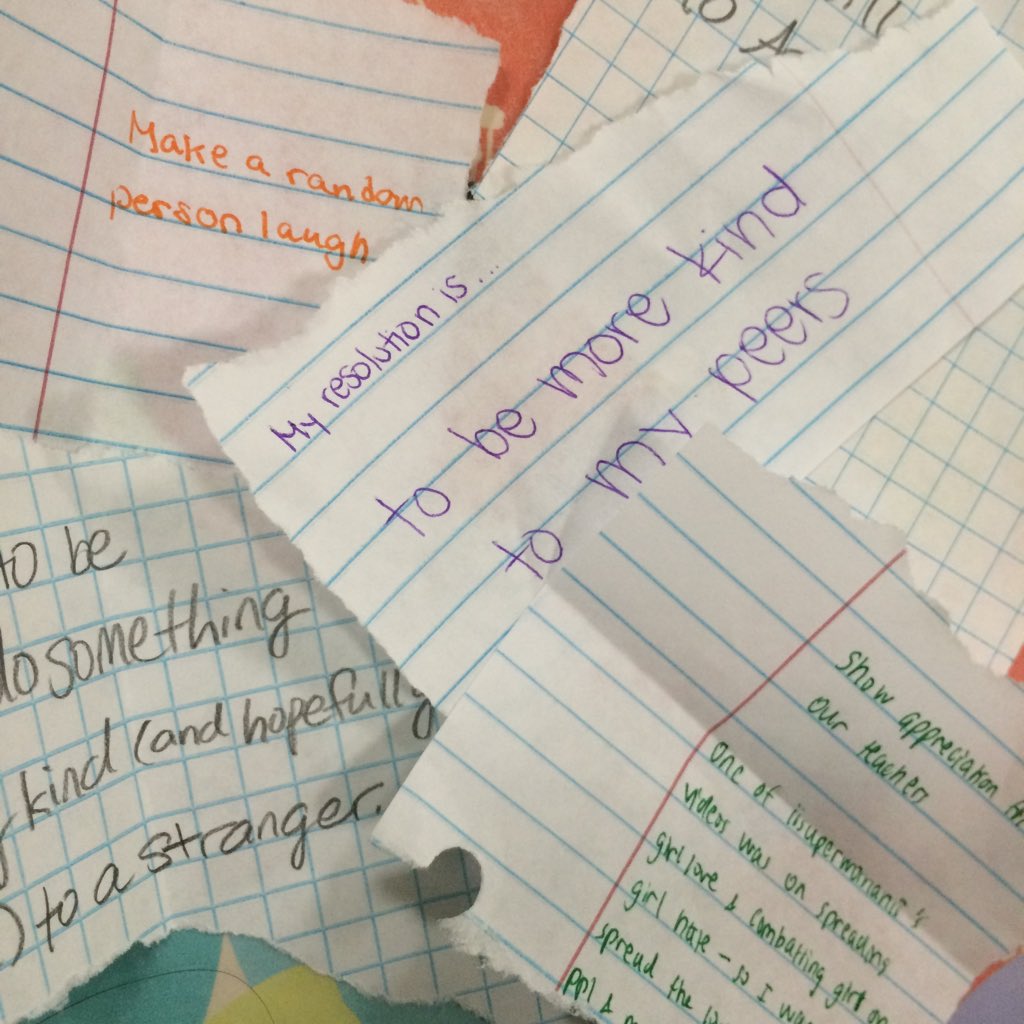 Make a random
person laugh
My resolution is...
to be more kind
to my peers
to be
do something
kind (and hopefully
) to a stranger.
show appreciation
our teacher
One of iisuperwomanii's
videos was on spreading
girl love & combatting girl on
girl hate - so I
spread the
ppl &
to A